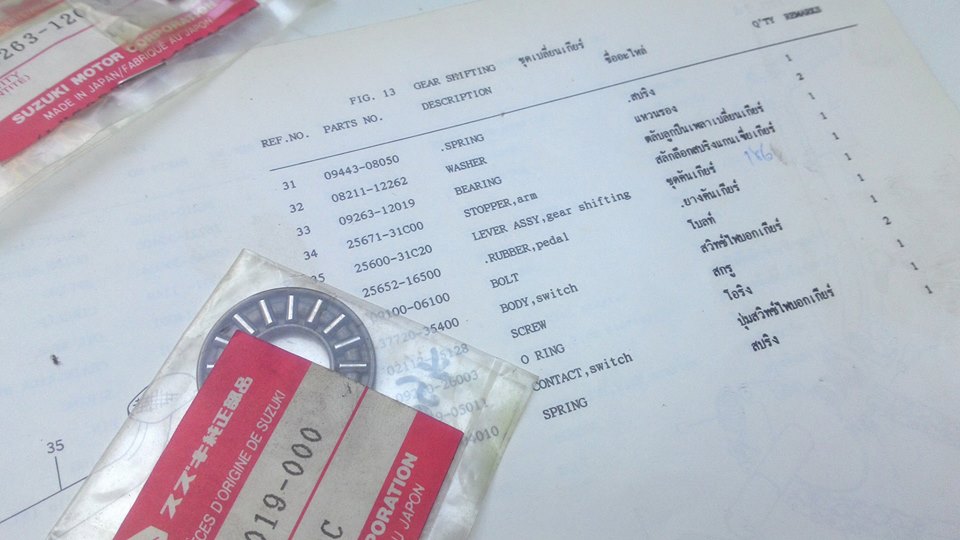 263-120
SUZUKI MOTOR CORPORATION
MADE IN JAPAN/FABRIQUE AU JAPON
FIG. 13 GEAR SHIFTING ชุดเปลี่ยนเกียร์
REF.NO. PARTS NO. DESCRIPTION ชื่ออะไหล่ Q'TY REMARKS
31 09443-08050 .SPRING .สปริง 1
32 08211-12262 WASHER แหวนรอง 2
33 09263-12019 BEARING ตลับลูกปืนเพลาเปลี่ยนเกียร์ 1
34 25671-31C00 STOPPER,arm สลักล็อกสปริงแกนเขี่ยเกียร์ 1
35 25600-31C20 LEVER ASSY,gear shifting ชุดคันเกียร์ 186 1
25652-16500 .RUBBER,pedal .ยางคันเกียร์ 1
09100-06100 BOLT โบลท์ 1
37720-35400 BODY,switch สวิทซ์ไฟบอกเกียร์ 1
SCREW สกรู 2
O RING โอริง 1
CONTACT,switch ปุ่มสวิทซ์ไฟบอกเกียร์ 1
010 SPRING สปริง 1
35
スズキ純正部品
PIÈCES D'ORIGINE DE SUZUKI
019-000
C
PORATION
AU JAPON